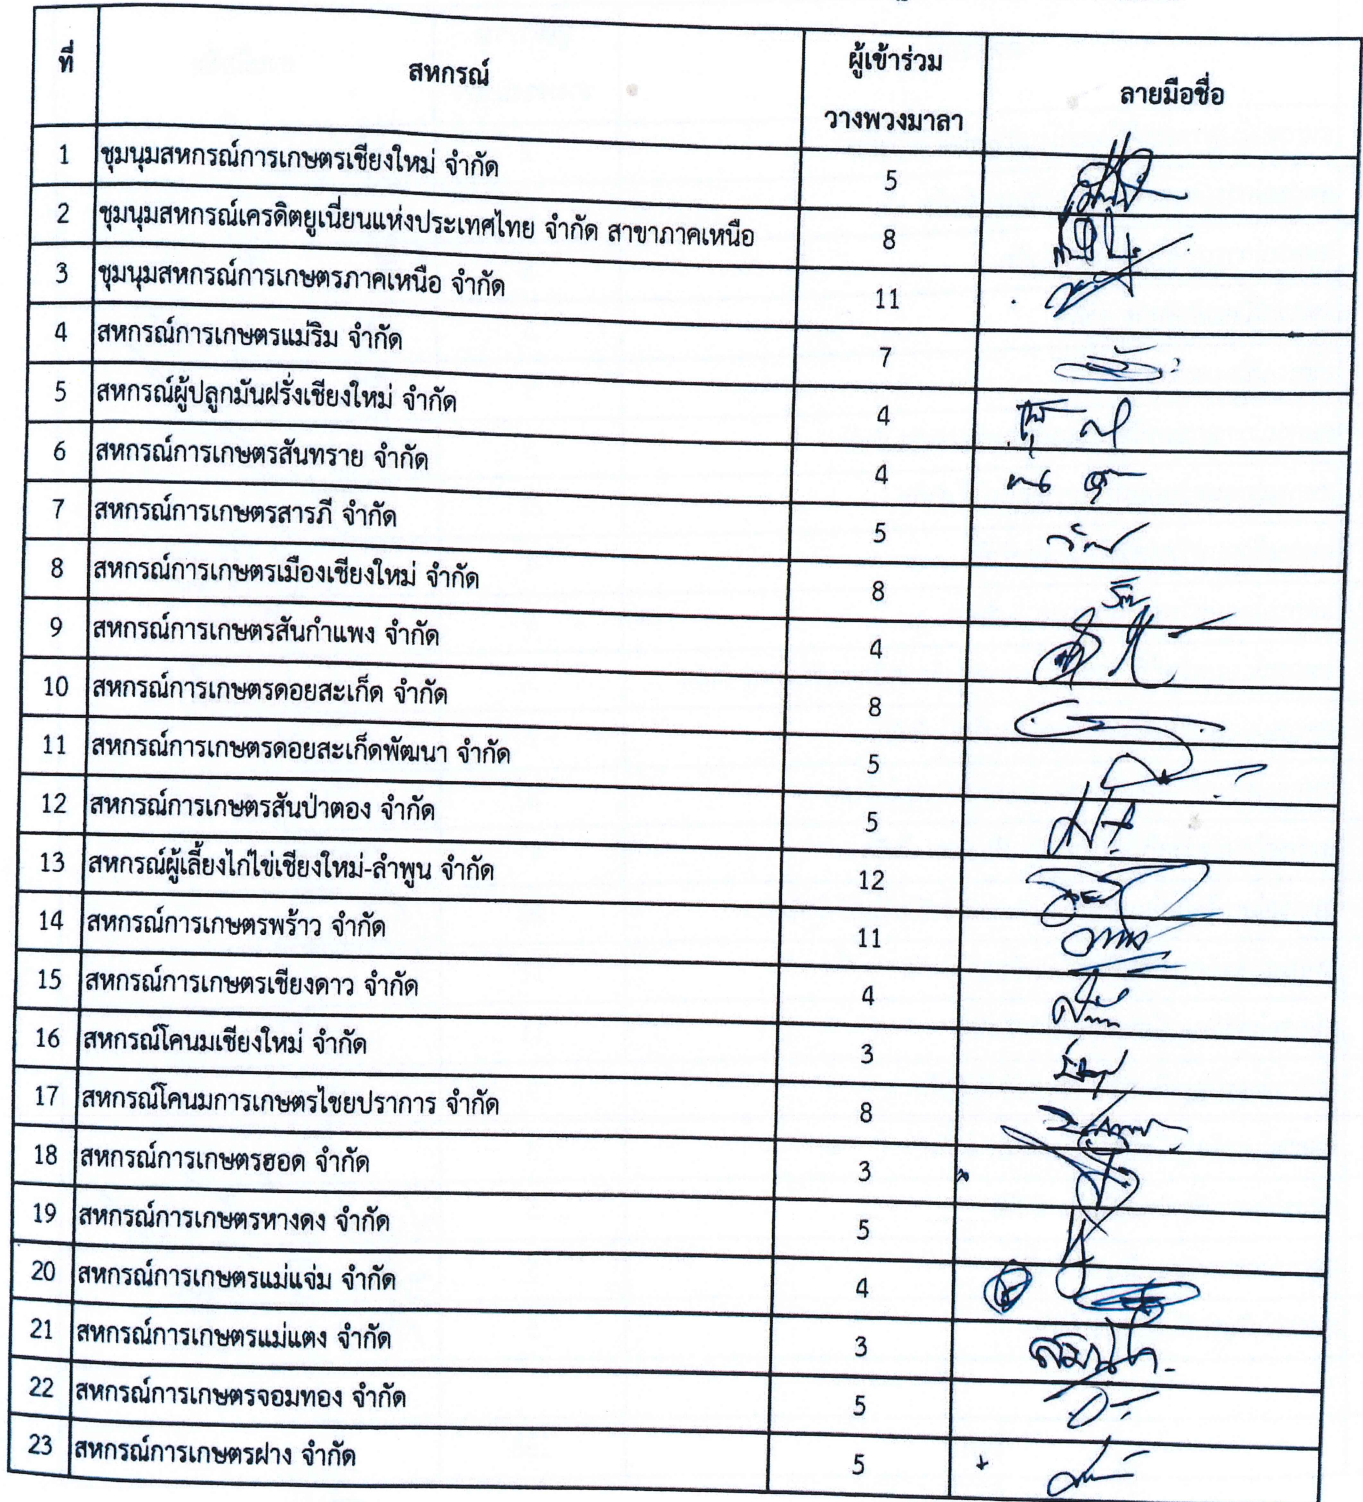 ที่ สหกรณ์ ผู้เข้าร่วม วางพวงมาลา ลายมือชื่อ
1 ชุมนุมสหกรณ์การเกษตรเชียงใหม่ จำกัด 5
2 ชุมนุมสหกรณ์เครดิตยูเนี่ยนแห่งประเทศไทย จำกัด สาขาภาคเหนือ 8
3 ชุมนุมสหกรณ์การเกษตรภาคเหนือ จำกัด 11
4 สหกรณ์การเกษตรแม่ริม จำกัด 7
5 สหกรณ์ผู้ปลูกมันฝรั่งเชียงใหม่ จำกัด 4
6 สหกรณ์การเกษตรสันทราย จำกัด 4
7 สหกรณ์การเกษตรสารภี จำกัด 5
8 สหกรณ์การเกษตรเมืองเชียงใหม่ จำกัด 8
9 สหกรณ์การเกษตรสันกำแพง จำกัด 4
10 สหกรณ์การเกษตรดอยสะเก็ด จำกัด 8
11 สหกรณ์การเกษตรดอยสะเก็ดพัฒนา จำกัด 5
12 สหกรณ์การเกษตรสันป่าตอง จำกัด 5
13 สหกรณ์ผู้เลี้ยงไก่ไข่เชียงใหม่-ลำพูน จำกัด 12
14 สหกรณ์การเกษตรพร้าว จำกัด 11
15 สหกรณ์การเกษตรเชียงดาว จำกัด 4
16 สหกรณ์โคนมเชียงใหม่ จำกัด 3
17 สหกรณ์โคนมการเกษตรไชยปราการ จำกัด 8
18 สหกรณ์การเกษตรฮอด จำกัด 3
19 สหกรณ์การเกษตรหางดง จำกัด 5
20 สหกรณ์การเกษตรแม่แจ่ม จำกัด 4
21 สหกรณ์การเกษตรแม่แตง จำกัด 3
22 สหกรณ์การเกษตรจอมทอง จำกัด 5
23 สหกรณ์การเกษตรฝาง จำกัด 5